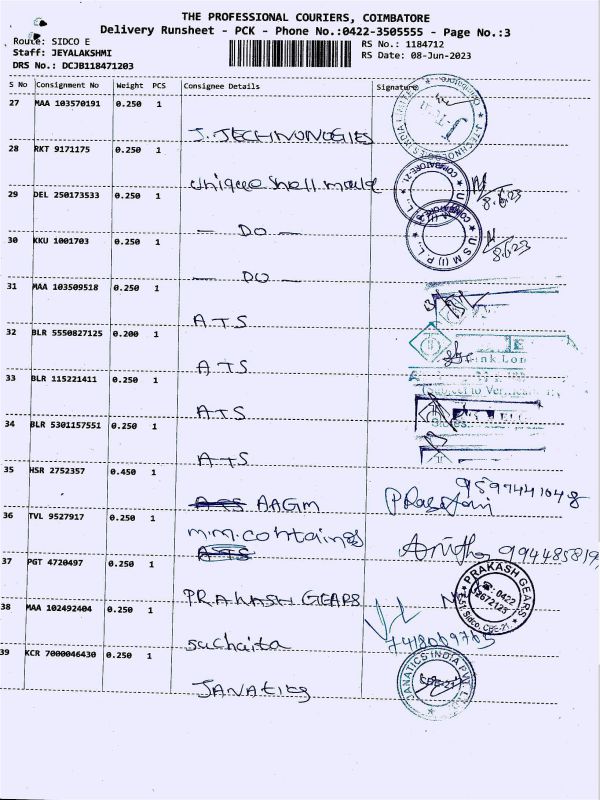 THE PROFESSIONAL COURIERS, COIMBATORE
Delivery Runsheet - PCK - Phone No.:0422-3505555 - Page No.:3
Route: SIDCO E
RS No.: 1184712
Staff: JEYALAKSHMI
RS Date: 08-Jun-2023
DRS No.: DCJB118471203
S No Consignment No Weight PCS Consignee Details Signature
27 MAA 103570191 0.250 1
J. TECHNONOGIES
28 RKT 9171175 0.250 1
unique shell mould
8.6.23
29 DEL 250173533 0.250 1
— DO —
30 KKU 1001703 0.250 1
USM (I) P. L.,
8.6.23
— DO —
31 MAA 103509518 0.250 1
ATS
32 BLR 5550827125 0.200 1
ATS
33 BLR 115221411 0.250 1
Subject to Verification
ATS
34 BLR 5301157551 0.250 1
ATS
35 HSR 2752357 0.450 1
AAGM
36 TVL 9527917 0.250 1
m.m. containes
37 PGT 4720497 0.250 1
PRAKASH GEARS
PRAKASH GEARS
0422
2672125
Sidco, CBE-21.
38 MAA 102492404 0.250 1
suchaita
39 KCR 7000046430 0.250 1
JANATICS INDIA PVT LTD
JANATICS